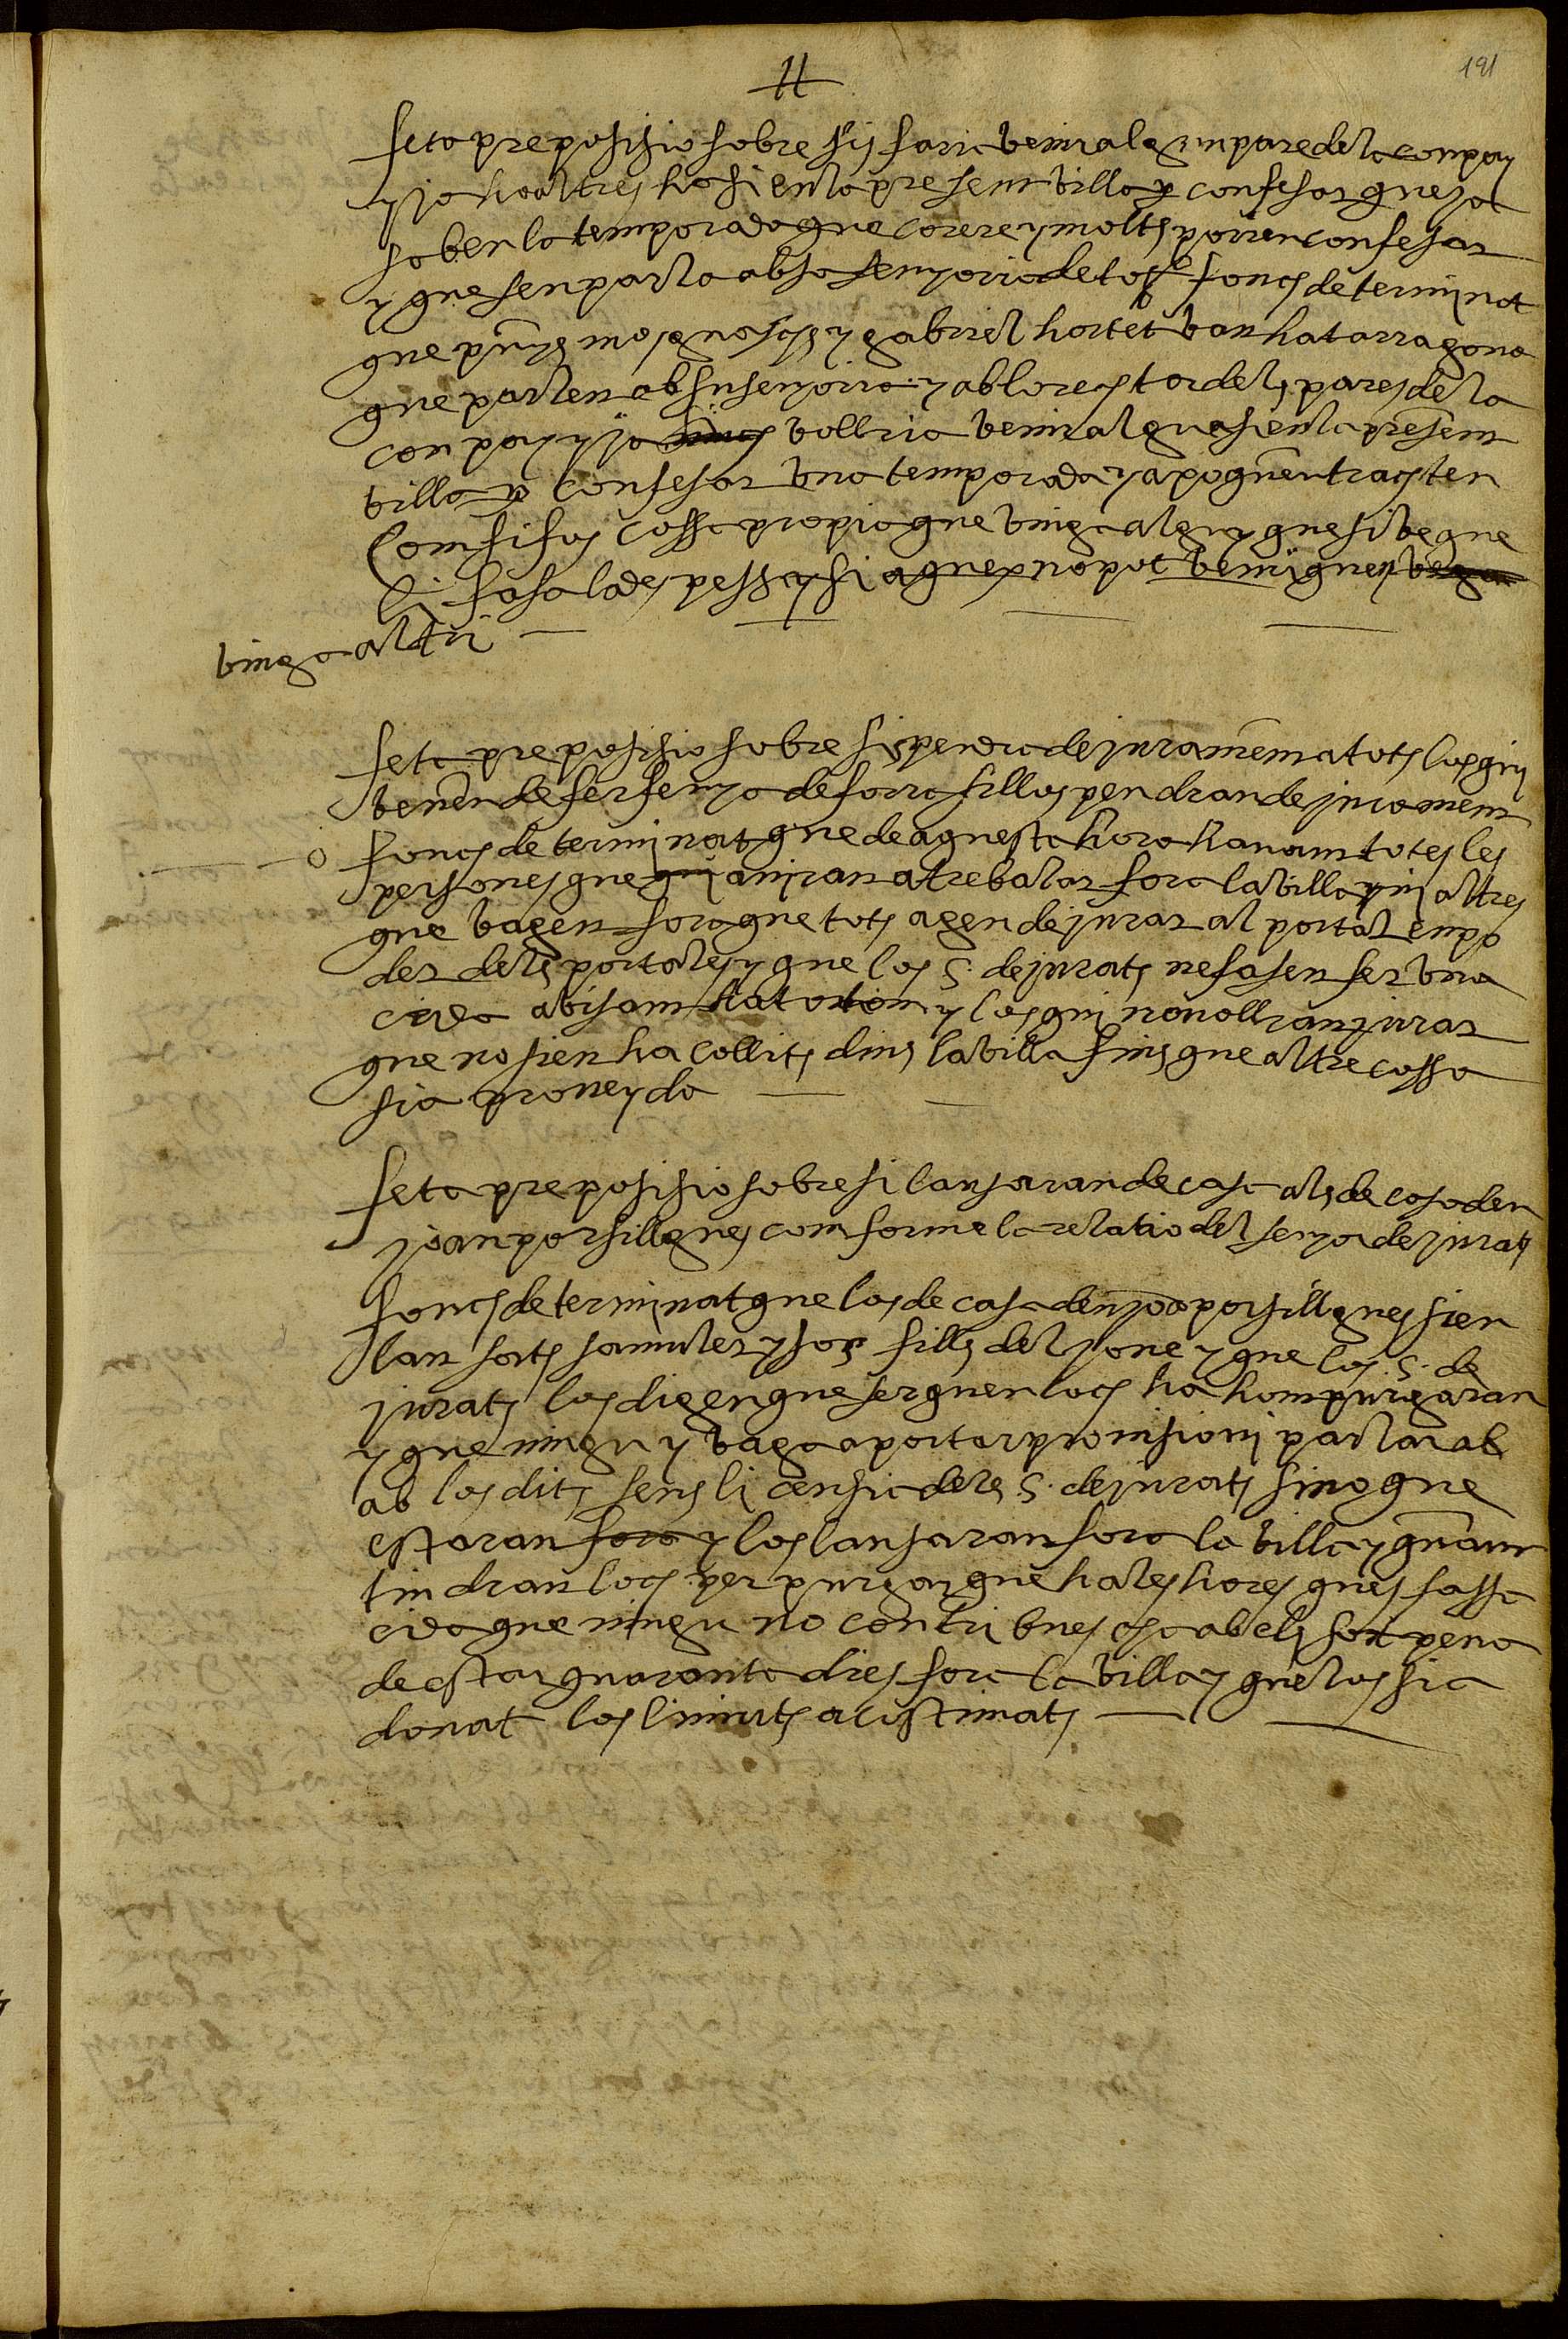 H
191
feta preposisio sobre sis faria venir algun pare de la conpay
yia ho altres ho si en la present villa p confesar que ja
saben la temporada que corere y molts porien confesar
y que sen parla ab sa senyoria de tot fonch determinat
que y gabriel hortet van ha tarragona
que parlen ab su senyoria y ab lo rector dels pares de la
conpayyia vollria venir algu asi en la present
villa p confesar una temporada y apoguen tracten
com si fos cossa propia que vinga algu y que si ve que
li fasa la despessa y si aquex no pot venir que y
vinga altri
feta preposisio sobre si pendra de jurament a tots los qui
venen de fer fenya de fora si llos pendran de jurament
fonch determinat que de aquesta hora hanant totes les
persones que aniran a treballar fora la villa y ni altres
que vagen fora que tots agen de jurar al portal en po
der dels portalers y que los S. de jurats ne fasen fer una
crida abisant ha tothom y los qui no vollran jurar
que no sien ha collits dins la villa fins que altre cossa
sia proveyda
feta preposisio sobre si lansaran de casa als de casa den
joan porsillgues comforme la relatio del senyor de jurats
fonch determinat que los de casa den joa porsillgues sien
lansats sa muler y sos fills del jove y que los S. de
jurats los digen que serquen loch ha hom purgaran
y que ningu y vaga a portar provisio ni parlar ab
ab los dits sens li censia dels S. de jurats sino que
estaran fora y los lansaran fora la villa y quant
tindran loch per purgar que hales hores ques fassa
crida que ningu no contribuesca ab els sot pena
de estar quaranta dies fora la villa y que los sia
donat los limits acostimats